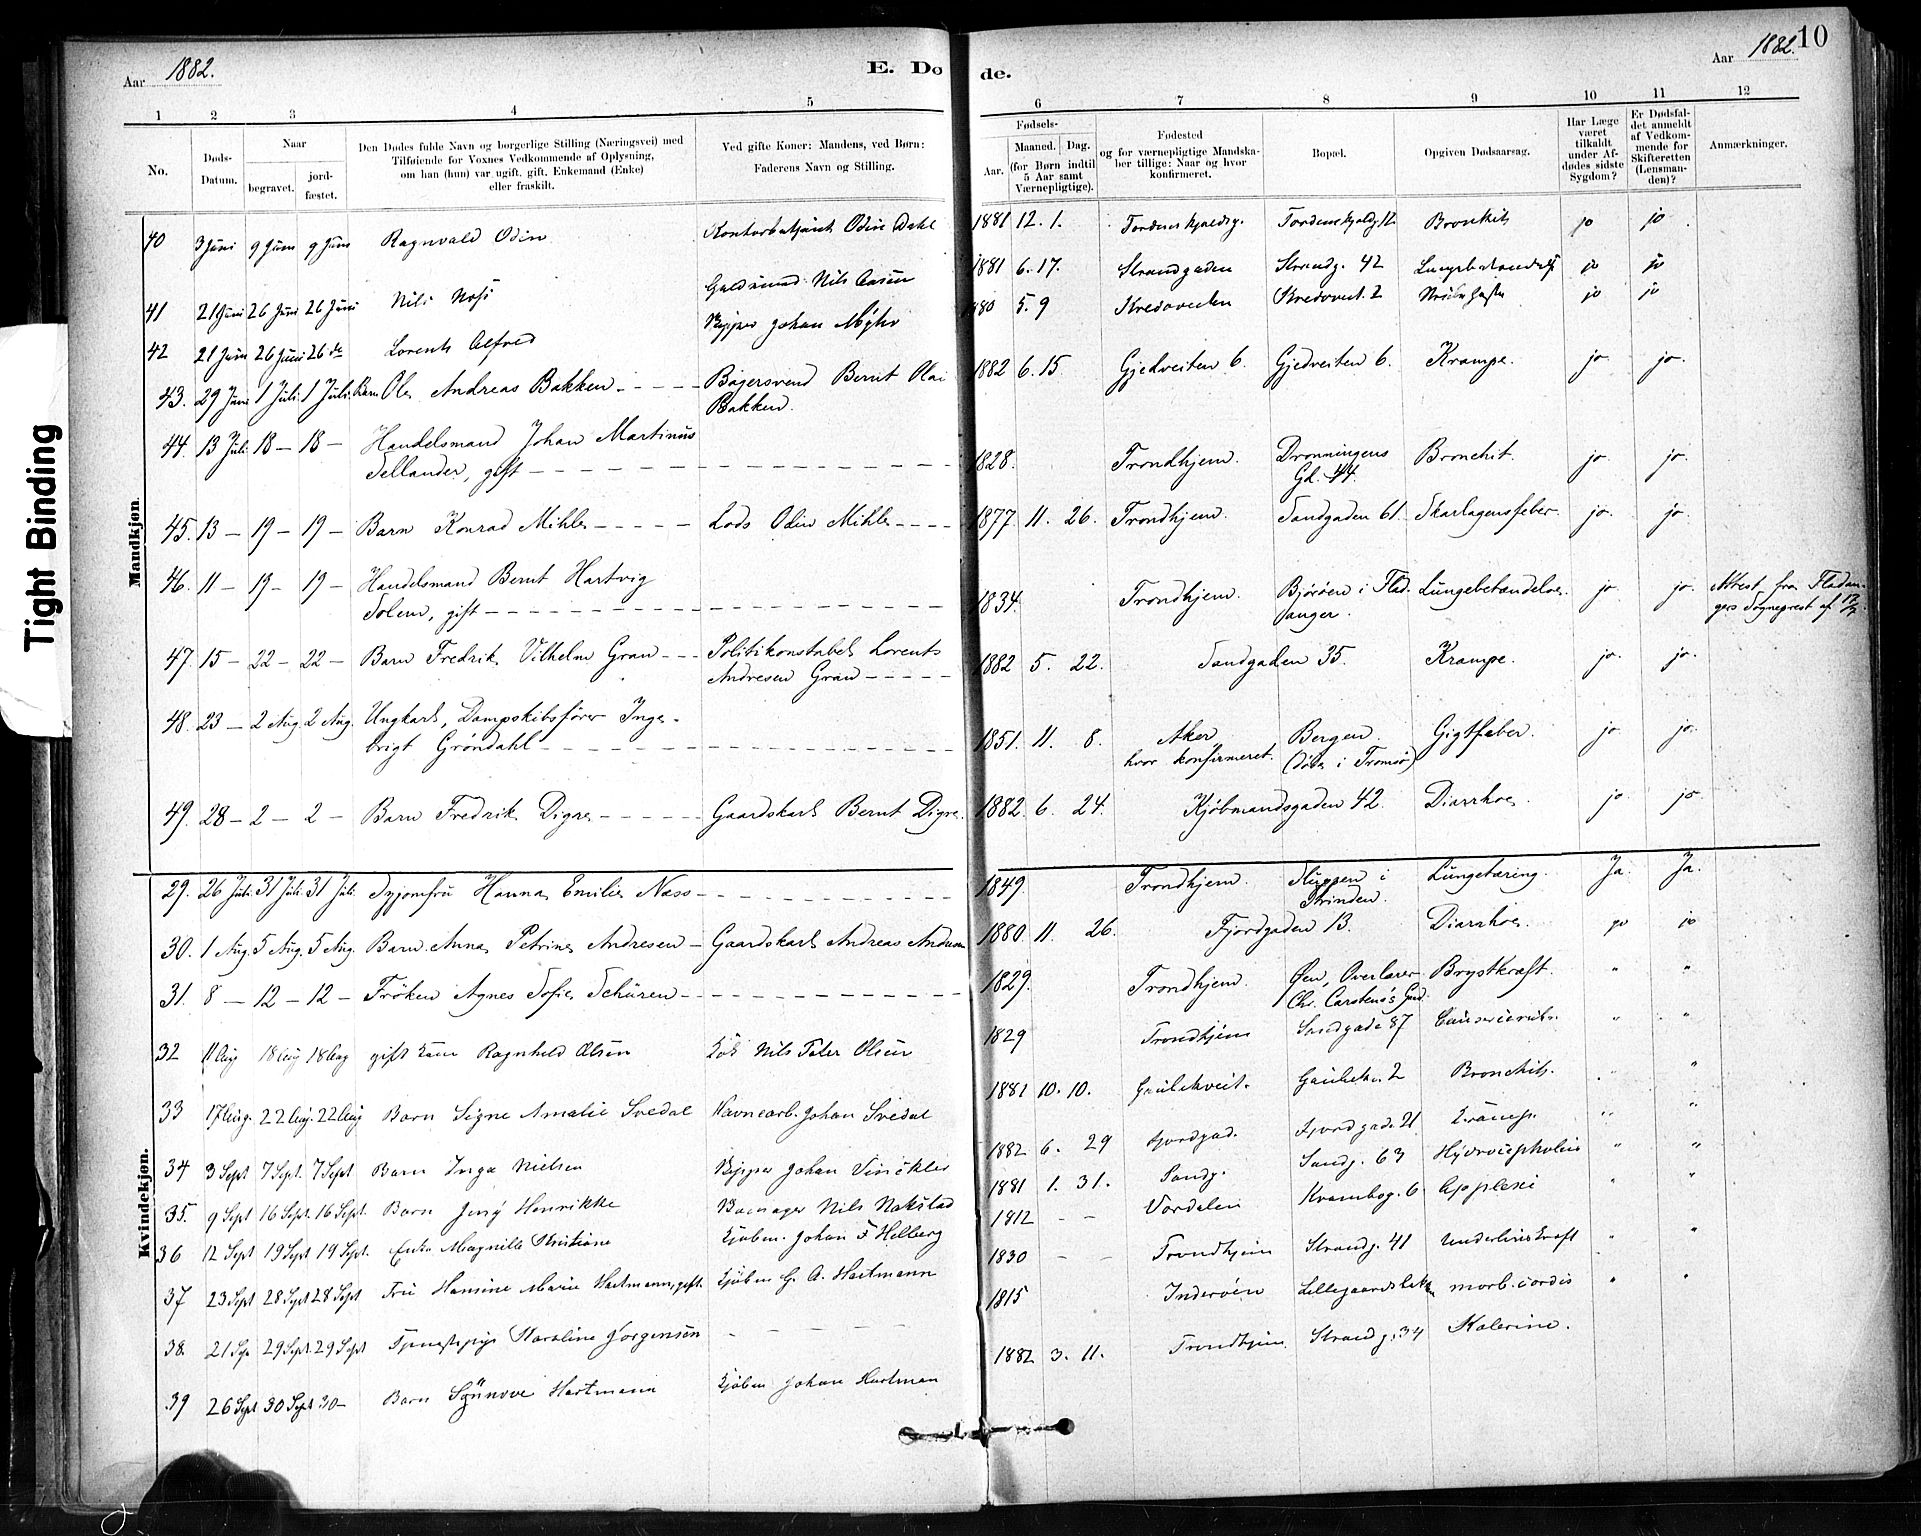 Aar 1882.
E. Dø
de.
Aar 1882.
10
1 2 3 4 5 6 7 8 9 10 11 12
No.
Døds-
Datum.
Naar
begravet.
jord-
fæstet.
Den Dødes fulde Navn og borgerlige Stilling (Næringsvei) med
Tilføiende for Voxnes Vedkommende af Oplysning,
om han (hun) var ugift, gift, Enkemand (Enke)
eller fraskilt.
Ved gifte Koner: Mandens, ved Børn:
Faderens Navn og Stilling.
Fødsels-
Aar.
Maaned. Dag.
(for Børn indtil
5 Aar samt
Værnepligtige).
Fødested
og for værnepligtige Mandska-
ber tillige: Naar og hvor
konfirmeret.
Bopæl.
Opgiven Dødsaarsag.
Har Læge
været
tilkaldt
under Af-
dødes sidste
Sygdom?
Er Dødsfal-
det anmeldt
af Vedkom-
mende for
Skifteretten
(Lensman-
den)?
Anmærkninger.
Tight Binding
Mandkjøn.
40 3 Juni 9 Juni 9 Juni Ragnvald Odin Odin Dahl 1881 12. 1. Tordenskjoldsg. Tordenskjoldg. 12 Bronkit jo jo
41 21 Juni 26 Juni 26 Juni Nils Guldsmed Nils 1881 6. 17. Strandgaden Strandg. 42 jo jo
42 21 Juni 26 Juni 26 de Lorents Alfred Johan 5. 9 2 jo jo
43. 29 Juni 1 Juli. 1 Juli. Barn Ole Andreas Bakken Bagersvend Bernt Olai
Bakken. 1882 6. 15. Gjedveiten 6. Gjedveiten 6. Krampe. jo. jo.
44. 13 Juli 18 — 18 — Handelsmand Johan Martinus
Sellander, gift 1828. Trondhjem. Dronningens
Gd. 44. Bronchit. jo. jo.
45. 13 — 19 — 19 — Barn Konrad Mihle Lods Odin Mihle 1877 11. 26. Trondhjem. Sandgaden 61. Skarlagensfeber. jo. jo.
46. 11 — 19 — 19 — Handelsmand Bernt Hartvig
Solem, gift 1834. Trondhjem. Björöen i Flad-
anger. Lungebetændelse. jo. jo. Attest fra Fladan-
gers Sogneprest af
47. 15 — 22 — 22 — Barn Fredrik Vilhelm Gran Politikonstabel Lorents
Andresen Gran 1882 5. 22. Sandgaden 35. Krampe. jo. jo.
48. 23 — 2 Aug. 2 Aug. Ungkarl, Dampskibsfører Inge-
brigt Gröndahl 1851. 11. 8. Aker
hvor konfirmeret. Bergen.
(døde i Tromsø) Gigtfeber. jo. jo.
49. 28 — 2 — 2 — Barn Fredrik Digre Gaardskarl Bernt Digre. 1882. 6. 24. Kjöbmandsgaden 42. Diarrhoe. jo jo
Kvindekjøn.
29. 26 Juli. 31 Juli. 31 Juli. Syjomfru Hanna Emilie Næss 1849. Trondhjem. Sluppen i
Strinden. Lungetæring. Ja. Ja.
30. 1 Aug. 5 Aug. 5 Aug. Barn Anna Petrine Andresen Gaardskarl Andreas Andresen 1880. 11. 26. Fjordgaden 13. Diarrhoe. jo jo
31. 8 — 12 — 12 — Fröken Agnes Sofie Schüren 1829. Trondhjem. Øen, Overlærer
Chr. Carstens's Gaard. Brystkræft. " "
32 11 Aug 18 Aug 18 Aug gift Ragnhild Olsen Nils Peter Olsen 1829 Trondhjem Sandgade 87 " "
33 17 Aug. 22 Aug. 22 Aug Barn Signe Amalie Svedal Havnearb. Johan Svedal 1881 10. 10. 2 Bronchit. "
34 3 Sept 7 Sept. 7 Sept. Barn Inga Nielsen Johan 1882 6. 29 Fjordgad. Fjordgade 21 " "
35. 9 Sept 16 Sept. 16 Sept. Barn Jenny Henrikke Nils Nakstad 1881 1. 31. Sandg. Sandg. 63 " "
36 12 Sept 19 Sept 19 Sept. Enke Magnille Kristiane Kjøbm. Johan F Helberg 1812 — — Værdalen Krambog. 6 Applexi " "
37 23 Sept 28 Sept 28 Sept Fru Hansine Marie Hartmann, gift. Kjøbm G. A. Hartmann 1830 — — Trondhjem Strandg. 41 Underlivskræft " "
38. 21 Sep 29 Sept. 29 Sept Tjenestepige Karoline Jørgensen 1815 Inderøen Lillegaardsbakken morb. cordis " "
39 26 Sept 30 Sept 30 — Barn Synnøve Hartmann Kjøbm Johan Hartman 1882 3. 11. Trondhjem Strandg. 34 Kolerine.